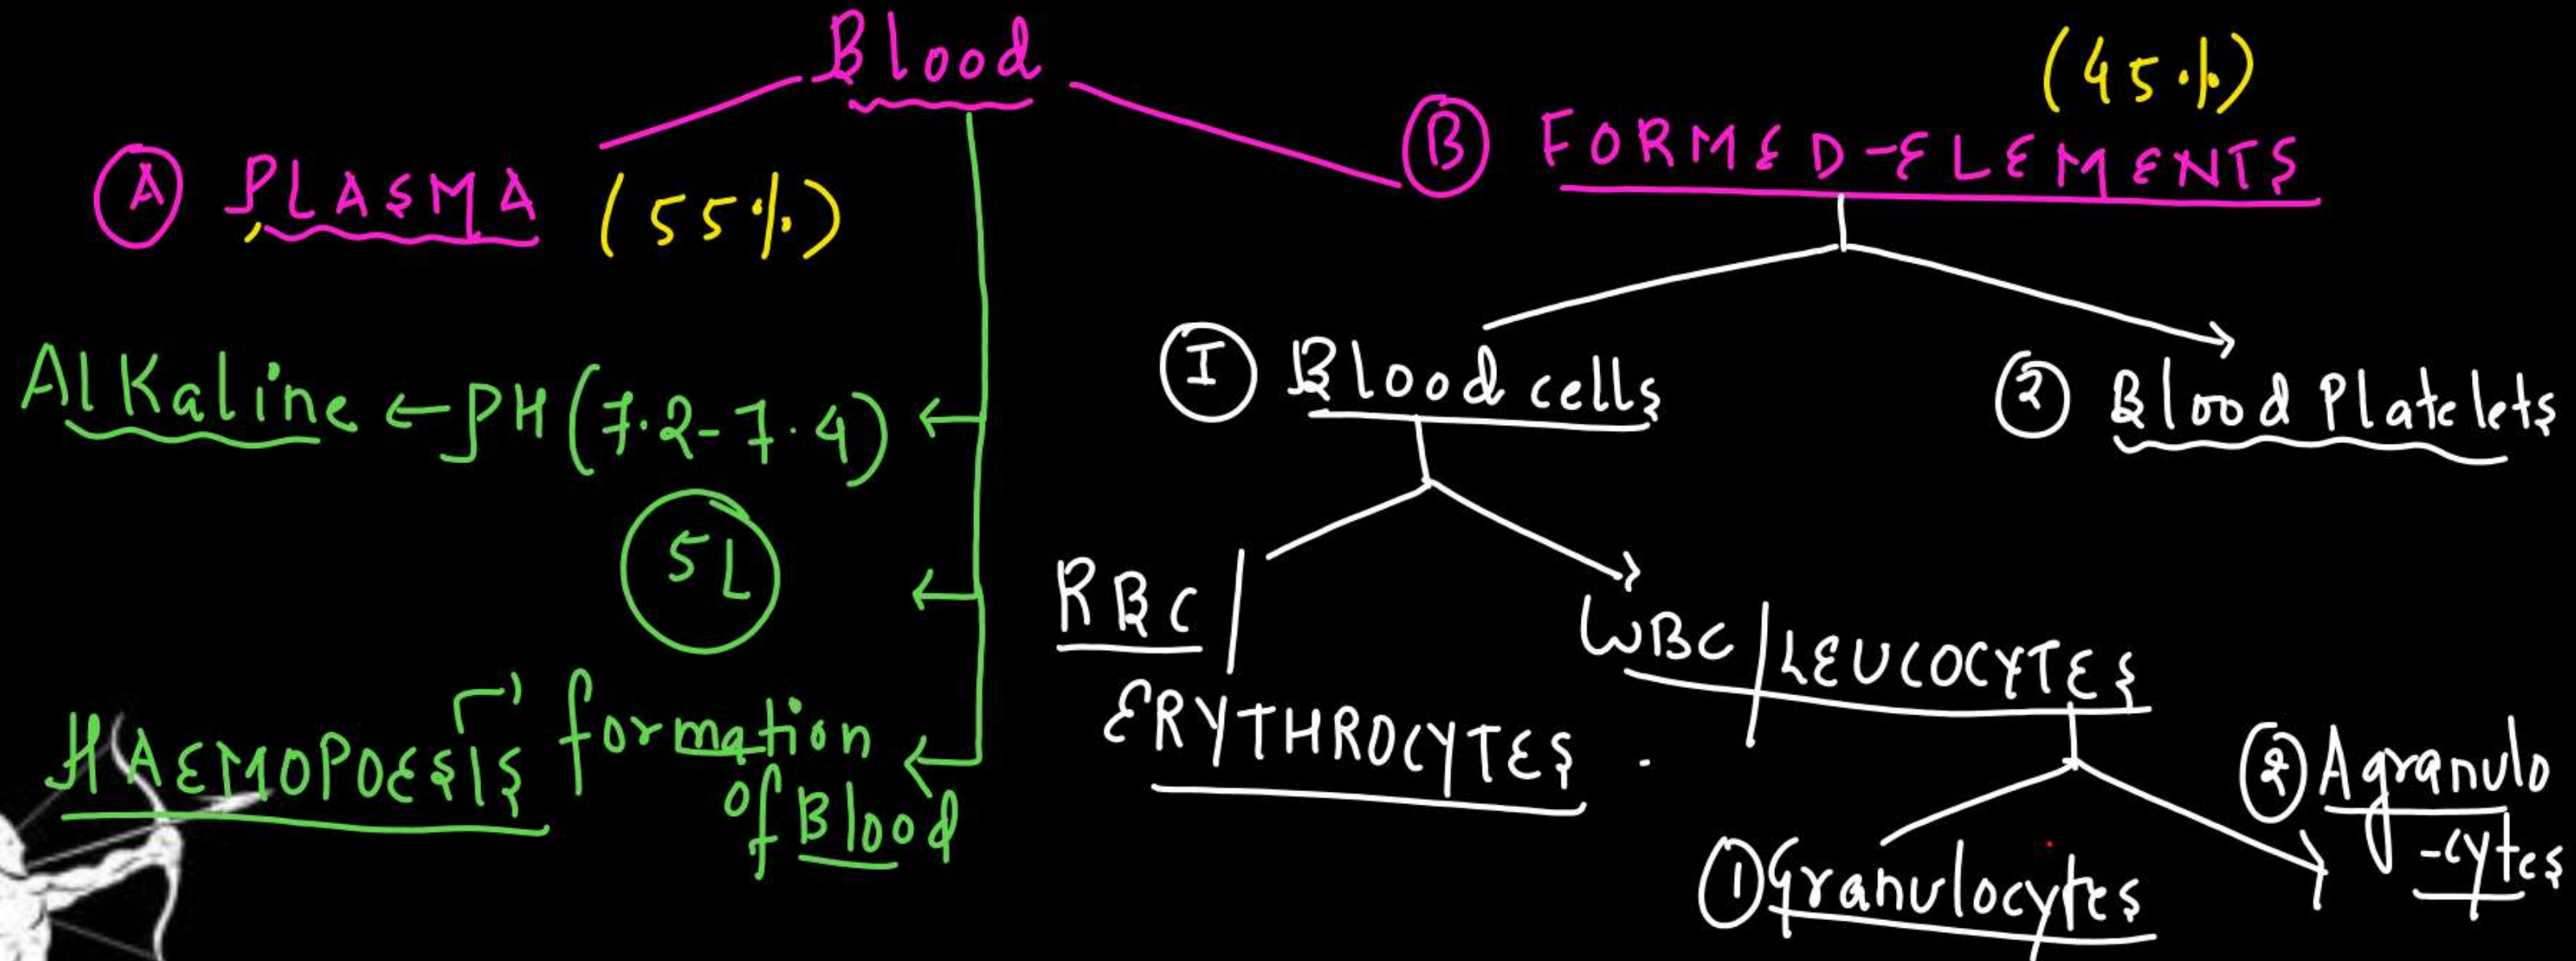 Blood
(A) PLASMA (55%)
(B) FORMED-ELEMENTS (45%)
Alkaline ← PH (7.2-7.4) ←
5L ←
HAEMOPOESIS formation ←
of Blood
(I) Blood cells
(2) Blood Platelets
RBC /
ERYTHROCYTES
WBC / LEUCOCYTES
(1) Granulocytes
(2) Agranulo
-cytes